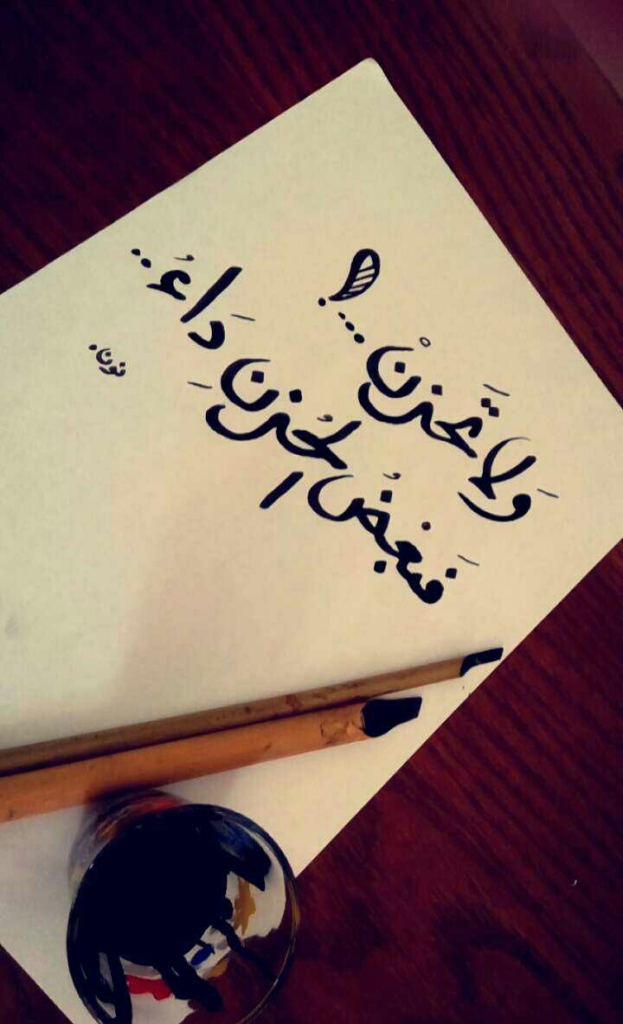 وَلَا تَحْزَنْ...!
فَبَعْضُ الحُزْنِ دَاءُ..
نون.